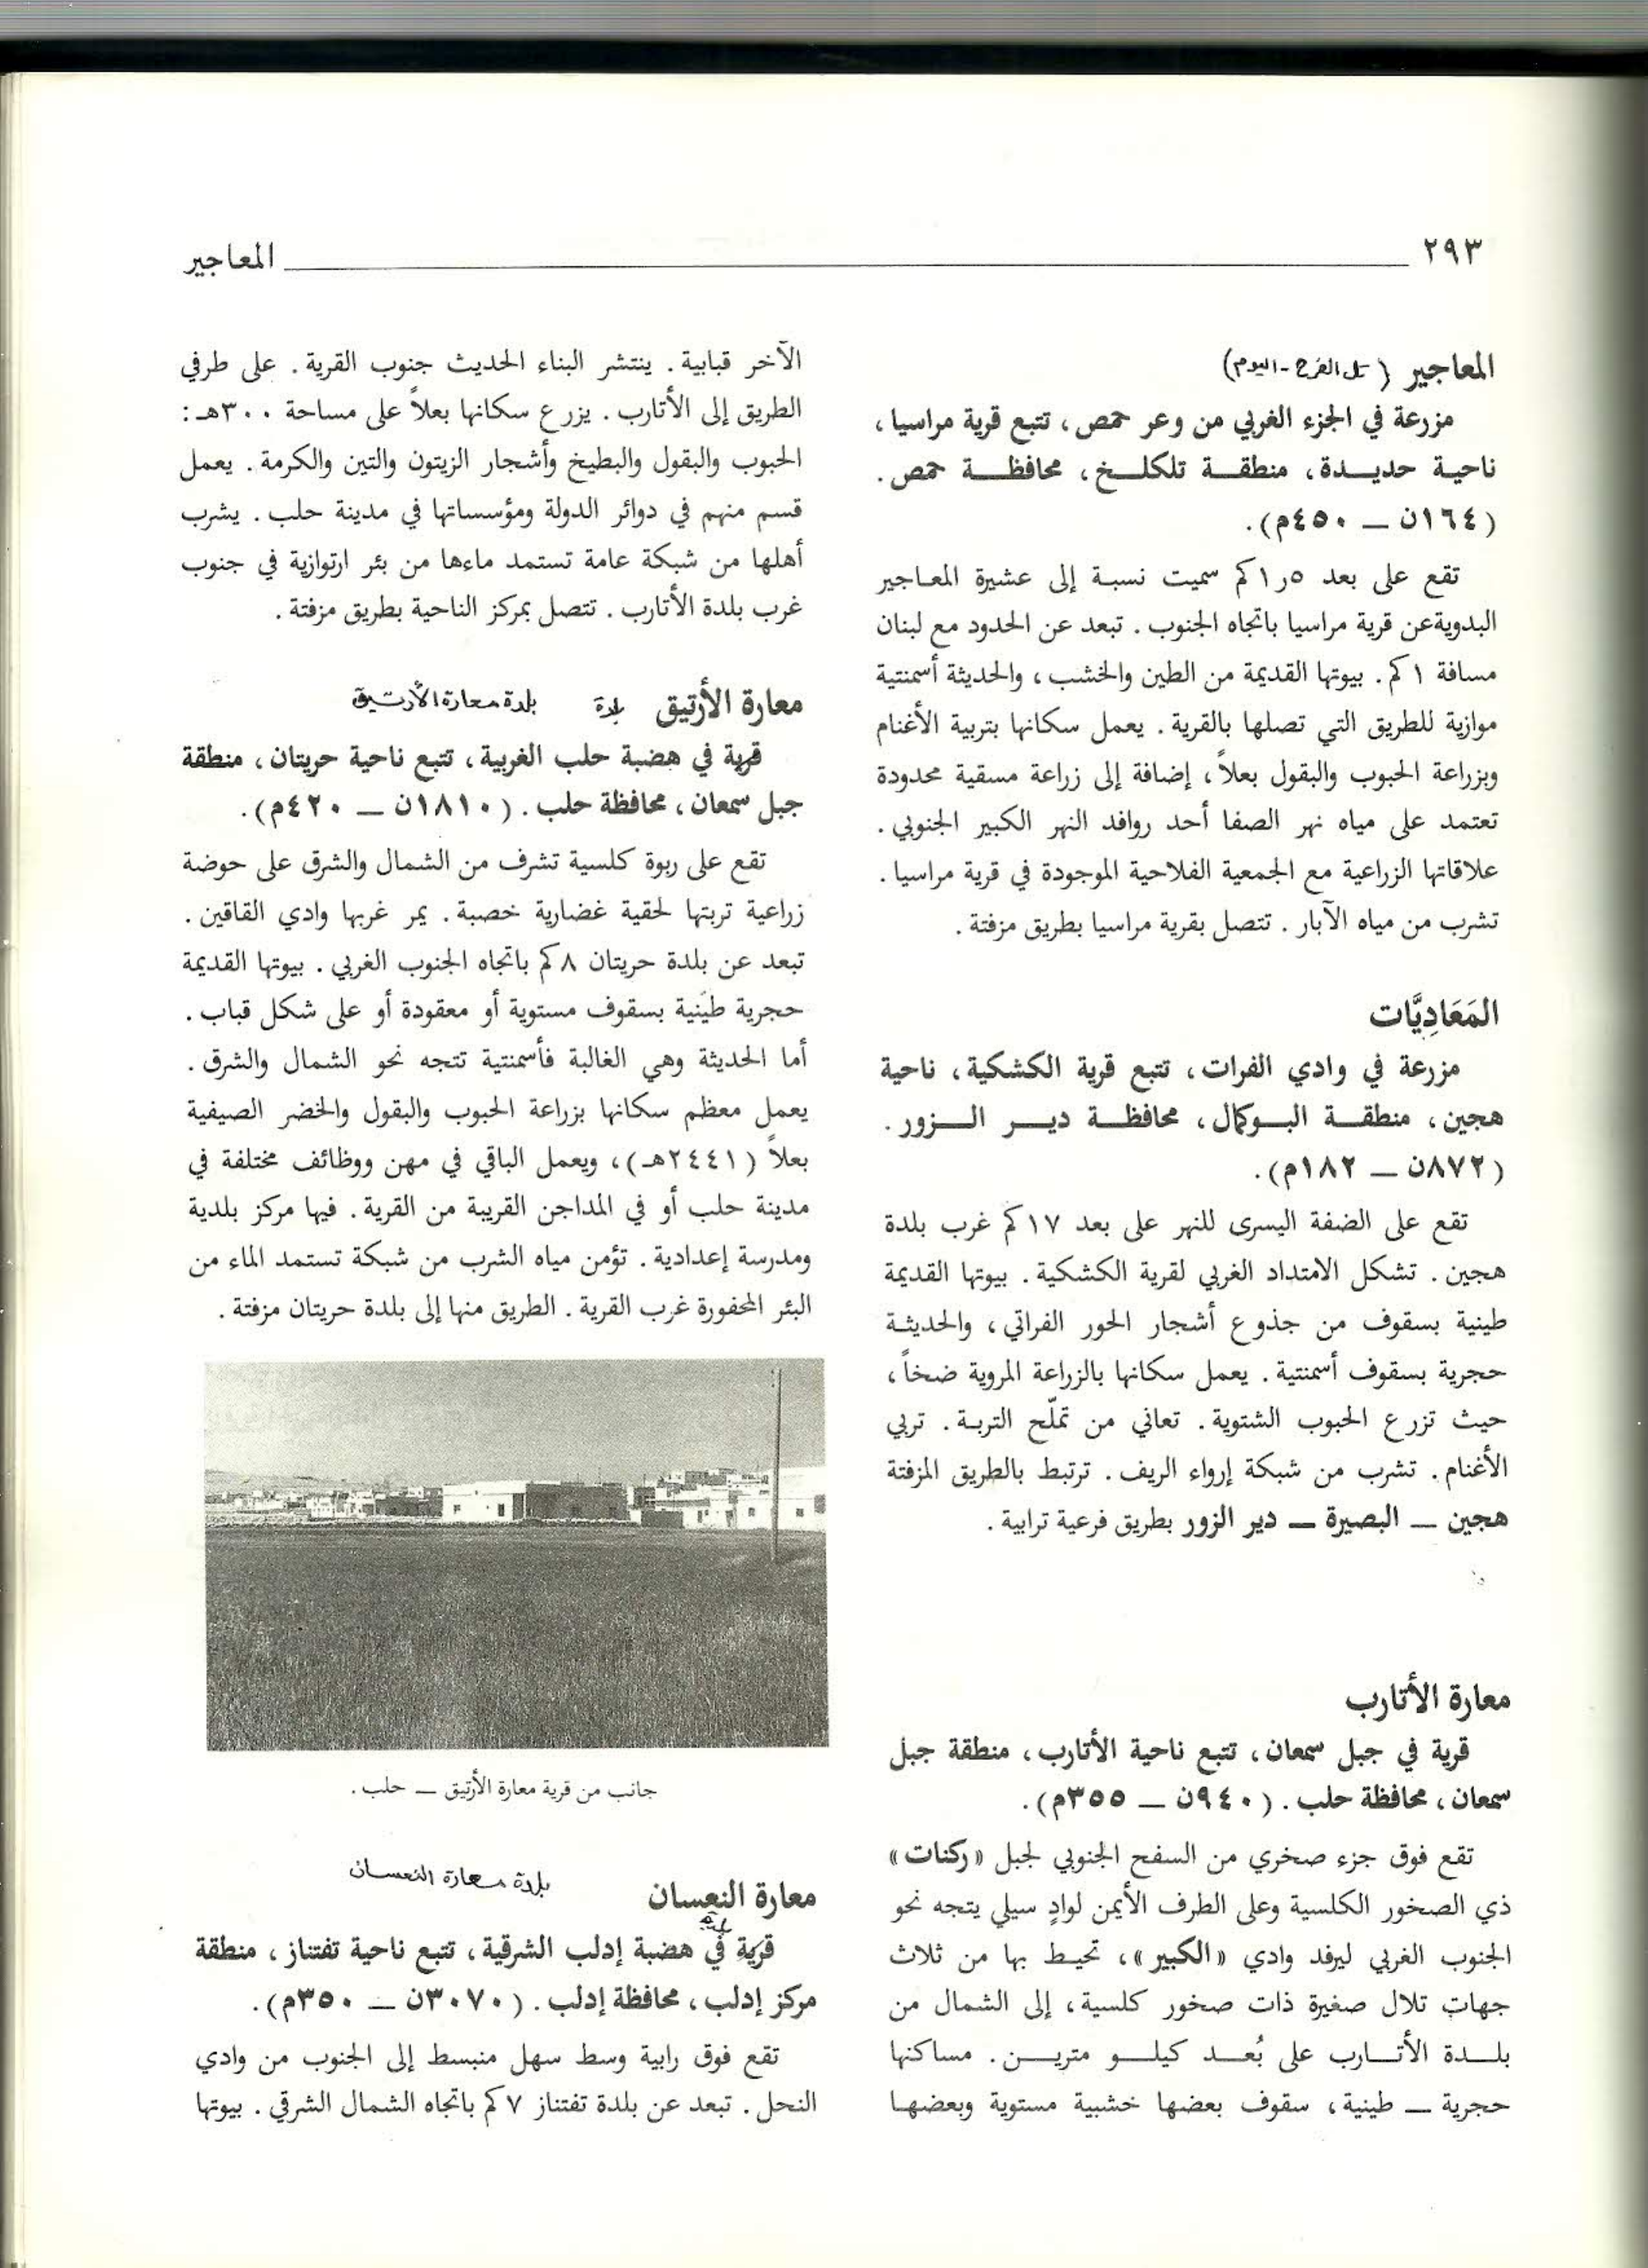 ٢٩٣
المعاجير
المعاجير (تل الفرح - اليوم)
مزرعة في الجزء الغربي من وعر حمص، تتبع قرية مراسيا،
ناحية حديدة، منطقة تلكلخ، محافظة حمص.
(١٦٤ن ــ ٤٥٠م).
تقع على بعد ٥ر١كم سميت نسبة إلى عشيرة المعاجير
البدويةعن قرية مراسيا باتجاه الجنوب. تبعد عن الحدود مع لبنان
مسافة ١كم. بيوتها القديمة من الطين والخشب، والحديثة أسمنتية
موازية للطريق التي تصلها بالقرية. يعمل سكانها بتربية الأغنام
وبزراعة الحبوب والبقول بعلاً، إضافة إلى زراعة مسقية محدودة
تعتمد على مياه نهر الصفا أحد روافد النهر الكبير الجنوبي.
علاقاتها الزراعية مع الجمعية الفلاحية الموجودة في قرية مراسيا.
تشرب من مياه الآبار. تتصل بقرية مراسيا بطريق مزفتة.
المَعَادِيَّات
مزرعة في وادي الفرات، تتبع قرية الكشكية، ناحية
هجين، منطقة البوكمال، محافظة دير الزور.
(٨٧٢ن ــ ١٨٢م).
تقع على الضفة اليسرى للنهر على بعد ١٧كم غرب بلدة
هجين. تشكل الامتداد الغربي لقرية الكشكية. بيوتها القديمة
طينية بسقوف من جذوع أشجار الحور الفراتي، والحديثة
حجرية بسقوف أسمنتية. يعمل سكانها بالزراعة المروية ضخاً،
حيث تزرع الحبوب الشتوية. تعاني من تملّح التربة. تربي
الأغنام. تشرب من شبكة إرواء الريف. ترتبط بالطريق المزفتة
هجين ــ البصيرة ــ دير الزور بطريق فرعية ترابية.
معارة الأتارب
قرية في جبل سمعان، تتبع ناحية الأتارب، منطقة جبل
سمعان، محافظة حلب. (٩٤٠ن ــ ٣٥٥م).
تقع فوق جزء صخري من السفح الجنوبي لجبل «ركنات»
ذي الصخور الكلسية وعلى الطرف الأيمن لوادٍ سيلي يتجه نحو
الجنوب الغربي ليرفد وادي «الكبير»، تحيط بها من ثلاث
جهات تلال صغيرة ذات صخور كلسية، إلى الشمال من
بلدة الأتارب على بُعد كيلو مترين. مساكنها
حجرية ــ طينية، سقوف بعضها خشبية مستوية وبعضها
الآخر قبابية. ينتشر البناء الحديث جنوب القرية. على طرفي
الطريق إلى الأتارب. يزرع سكانها بعلاً على مساحة ٣٠٠هـ:
الحبوب والبقول والبطيخ وأشجار الزيتون والتين والكرمة. يعمل
قسم منهم في دوائر الدولة ومؤسساتها في مدينة حلب. يشرب
أهلها من شبكة عامة تستمد ماءها من بئر ارتوازية في جنوب
غرب بلدة الأتارب. تتصل بمركز الناحية بطريق مزفتة.
معارة الأرتيق بلدة بلدة معارة الأرتيق
قرية في هضبة حلب الغربية، تتبع ناحية حريتان، منطقة
جبل سمعان، محافظة حلب. (١٨١٠ن ــ ٤٢٠م).
تقع على ربوة كلسية تشرف من الشمال والشرق على حوضة
زراعية تربتها لحقية غضارية خصبة. يمر غربها وادي القاقين.
تبعد عن بلدة حريتان ٨كم باتجاه الجنوب الغربي. بيوتها القديمة
حجرية طينية بسقوف مستوية أو معقودة أو على شكل قباب.
أما الحديثة وهي الغالبة فأسمنتية تتجه نحو الشمال والشرق.
يعمل معظم سكانها بزراعة الحبوب والبقول والخضر الصيفية
بعلاً (٢٤٤١هـ)، ويعمل الباقي في مهن ووظائف مختلفة في
مدينة حلب أو في المداجن القريبة من القرية. فيها مركز بلدية
ومدرسة إعدادية. تؤمن مياه الشرب من شبكة تستمد الماء من
البئر المحفورة غرب القرية. الطريق منها إلى بلدة حريتان مزفتة.
جانب من قرية معارة الأرتيق ــ حلب.
معارة النعسان بلدة معارة النعسان
بلدة
قرية في هضبة إدلب الشرقية، تتبع ناحية تفتناز، منطقة
مركز إدلب، محافظة إدلب. (٣٠٧٠ن ــ ٣٥٠م).
تقع فوق رابية وسط سهل منبسط إلى الجنوب من وادي
النحل. تبعد عن بلدة تفتناز ٧كم باتجاه الشمال الشرقي. بيوتها